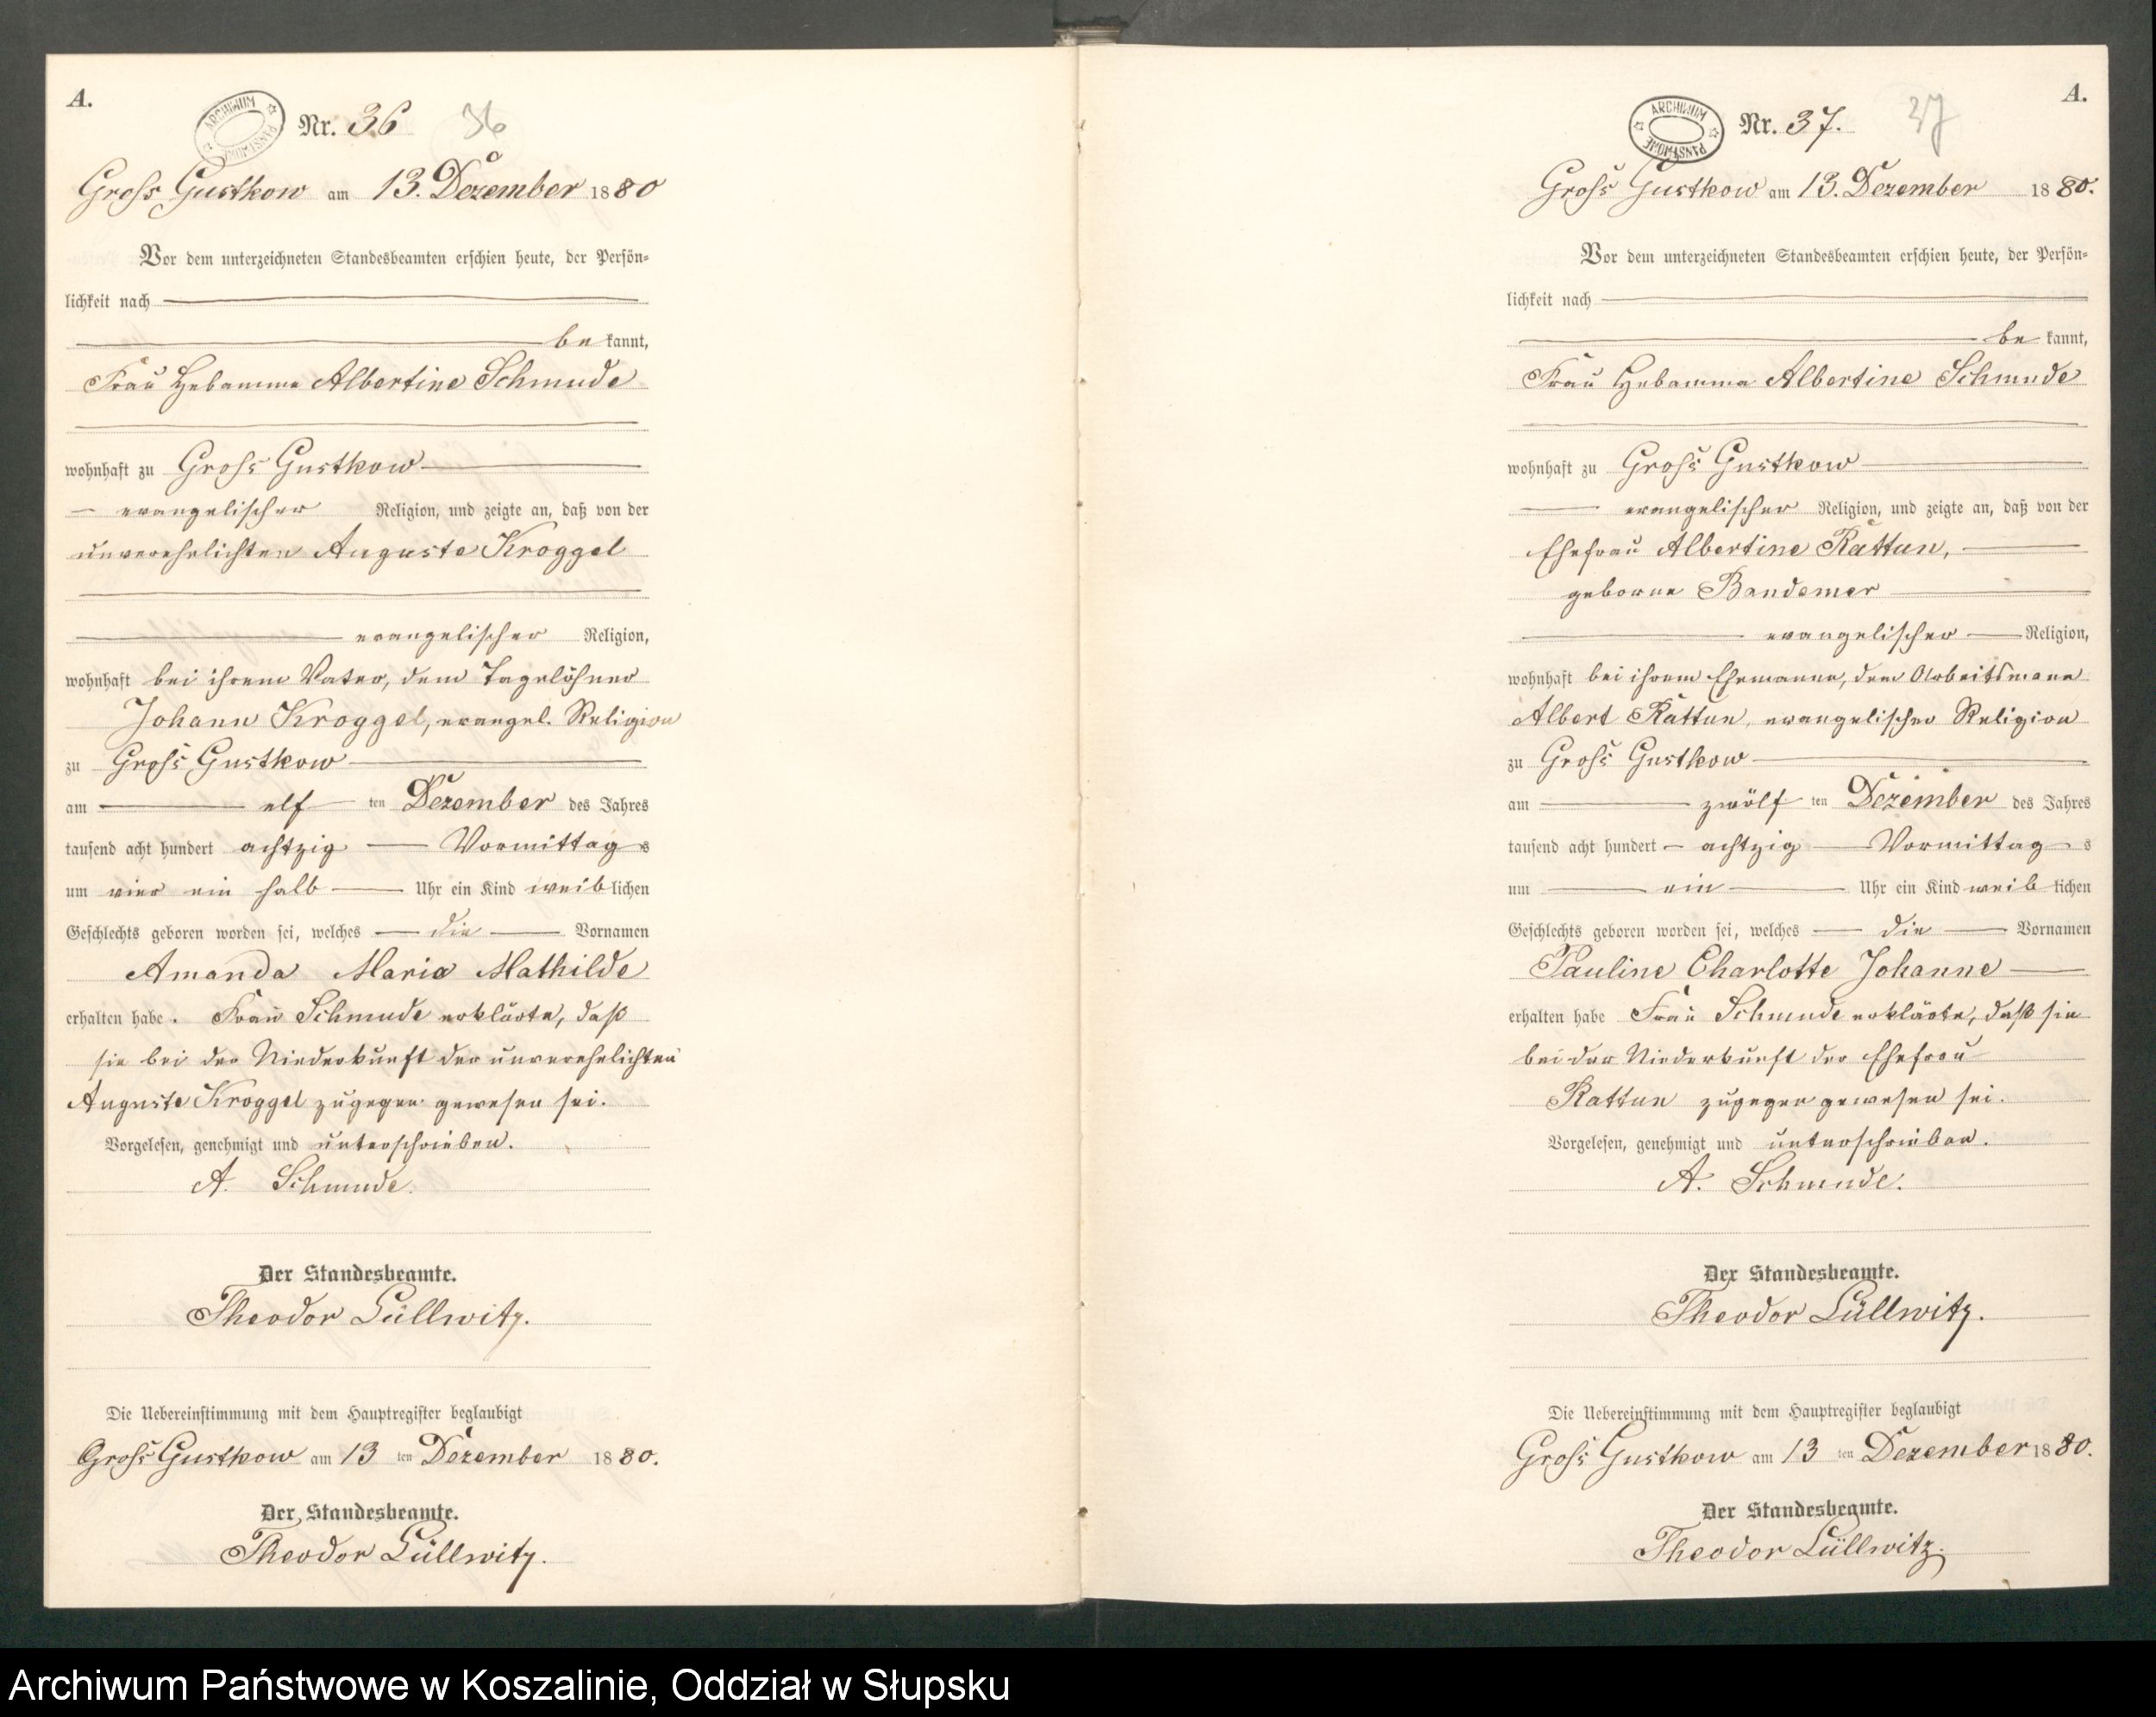 A.
ARCHIWUM PAŃSTWOWE
Nr. 36
36
Gross Gustkow am 13. Dezember 1880
Vor dem unterzeichneten Standesbeamten erschien heute, der Persön-
lichkeit nach
bekannt,
Frau Hebamme Albertine Schmude
wohnhaft zu Gross Gustkow
evangelischer Religion, und zeigte an, daß von der
unverehelichten Auguste Kroggel
evangelischer Religion,
wohnhaft bei ihrem Vater, dem Tagelöhner
Johann Kroggel, evangel. Religion
zu Gross Gustkow
am elf ten Dezember des Jahres
tausend acht hundert achtzig Vormittags
um vier ein halb Uhr ein Kind weiblichen
Geschlechts geboren worden sei, welches die Vornamen
Amanda Maria Mathilde
erhalten habe. Frau Schmude erklärte, daß
sie bei der Niederkunft der unverehelichten
Auguste Kroggel zugegen gewesen sei.
Vorgelesen, genehmigt und unterschrieben.
A. Schmude.
Der Standesbeamte.
Theodor Lüllwitz.
Die Uebereinstimmung mit dem Hauptregister beglaubigt
Gross Gustkow am 13 ten Dezember 1880.
Der Standesbeamte.
Theodor Lüllwitz.
A.
ARCHIWUM PAŃSTWOWE
Nr. 37.
37
Gross Gustkow am 13. Dezember 1880.
Vor dem unterzeichneten Standesbeamten erschien heute, der Persön-
lichkeit nach
bekannt,
Frau Hebamme Albertine Schmude
wohnhaft zu Gross Gustkow
evangelischer Religion, und zeigte an, daß von der
Ehefrau Albertine Rattun,
geborne Bandemer
evangelischer Religion,
wohnhaft bei ihrem Ehemanne, dem Arbeitsmann
Albert Rattun, evangelischer Religion
zu Gross Gustkow
am zwölf ten Dezember des Jahres
tausend acht hundert achtzig Vormittags
um ein Uhr ein Kind weiblichen
Geschlechts geboren worden sei, welches die Vornamen
Pauline Charlotte Johanne
erhalten habe Frau Schmude erklärte, daß sie
bei der Niederkunft der Ehefrau
Rattun zugegen gewesen sei.
Vorgelesen, genehmigt und unterschrieben.
A. Schmude.
Der Standesbeamte.
Theodor Lüllwitz.
Die Uebereinstimmung mit dem Hauptregister beglaubigt
Gross Gustkow am 13 ten Dezember 1880.
Der Standesbeamte.
Theodor Lüllwitz.
Archiwum Państwowe w Koszalinie, Oddział w Słupsku